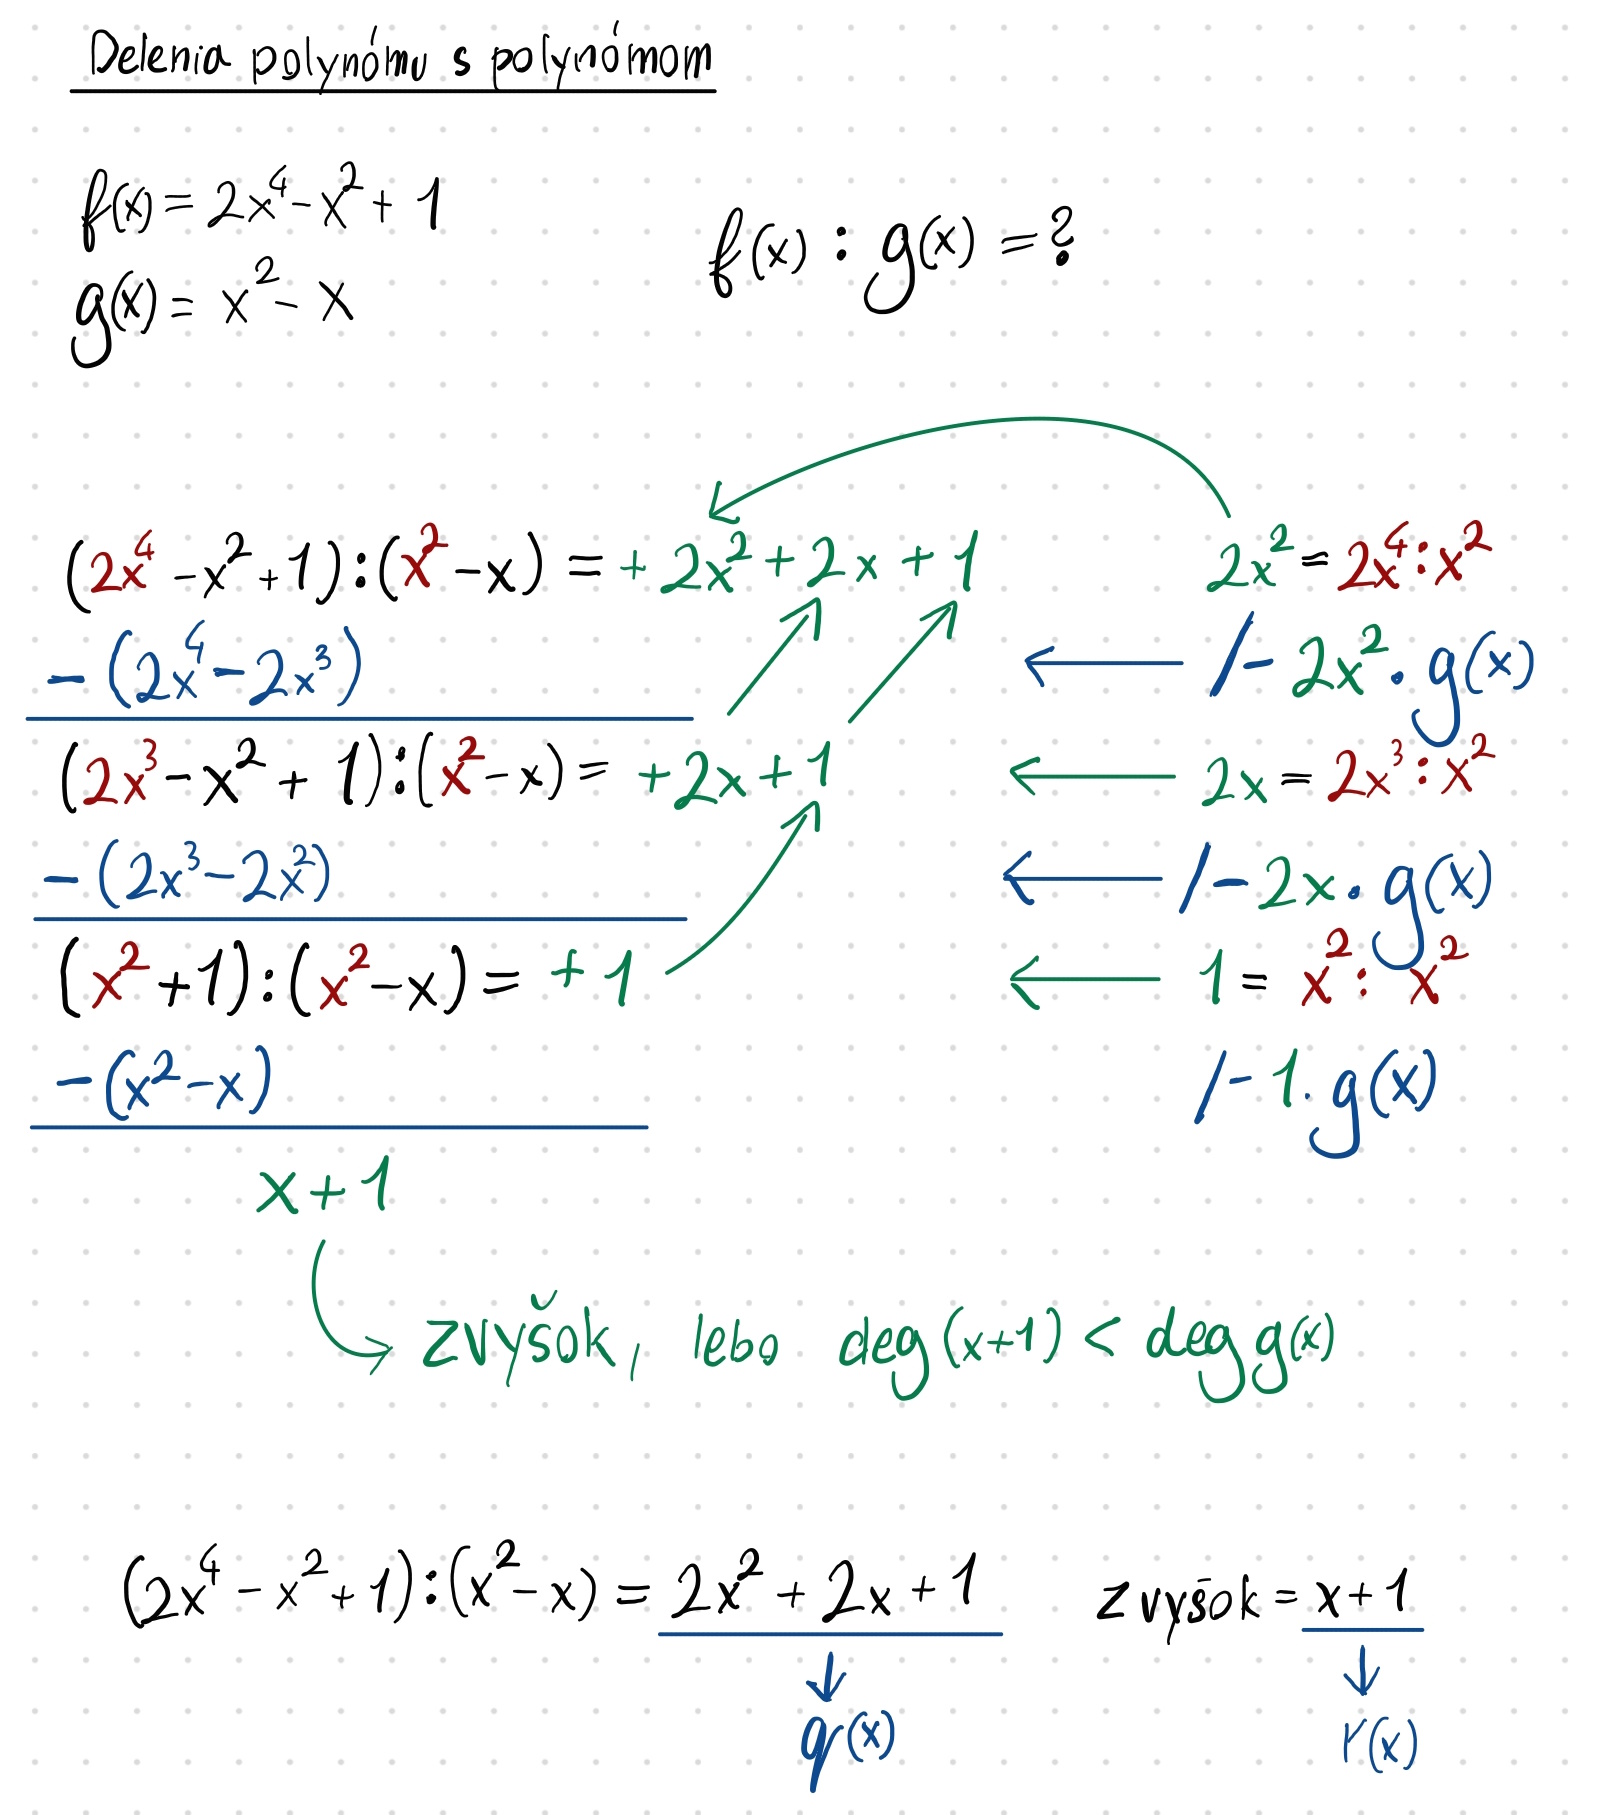 Delenia polynómu s polynómom
f(x) = 2x⁴ - x² + 1
g(x) = x² - x
f(x) : g(x) = ?
(2x⁴ - x² + 1) : (x² - x) = + 2x² + 2x + 1
2x² = 2x⁴ : x²
- (2x⁴ - 2x³)
/ - 2x² · g(x)
(2x³ - x² + 1) : (x² - x) = + 2x + 1
2x = 2x³ : x²
- (2x³ - 2x²)
/ - 2x · g(x)
(x² + 1) : (x² - x) = + 1
1 = x² : x²
- (x² - x)
/ - 1 · g(x)
x + 1
zvyšok, lebo deg (x+1) < deg g(x)
(2x⁴ - x² + 1) : (x² - x) = 2x² + 2x + 1
zvyšok = x + 1
q(x)
r(x)